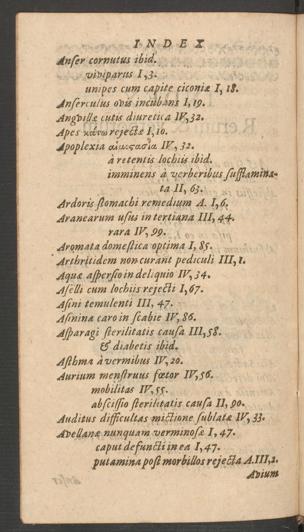 INDEX
Anſer cornutus ibid.
viviparus I,3.
unipes cum capite ciconiæ I, 18.
Anſerculus ovis incubans I, 19.
Angvillæ cutis diuretica IV, 32.
Apes κάνω rejectæ I, 10.
Apoplexia IV, 32.
à retentis lochiis ibid.
imminens à verberibus ſufflamina-
ta II, 63.
Ardoris ſtomachi remedium A. I, 6.
Aranearum uſus in tertiana III, 44.
rara IV, 99.
Aromata domeſtica optima I, 85.
Arthritidem non curant pediculi III, 1.
Aquæ aſperſio in deliquio IV, 34.
Aſelli cum lochiis rejecti I, 67.
Aſini temulenti III, 47.
Aſinina caro in ſcabie IV, 86.
Aſparagi ſterilitatis cauſa III, 58.
& diabetis ibid.
Aſthma à vermibus IV, 20.
Aurium menſtruus fœtor IV, 56.
mobilitas IV, 55.
abſciſſio ſterilitatis cauſa II, 90.
Auditus difficultas mictione ſublata IV, 33.
Avellanæ nunquam verminoſæ I, 47.
caput defuncti in ea I, 47.
putamina poſt morbillos rejecta A. III, 2.
Avium